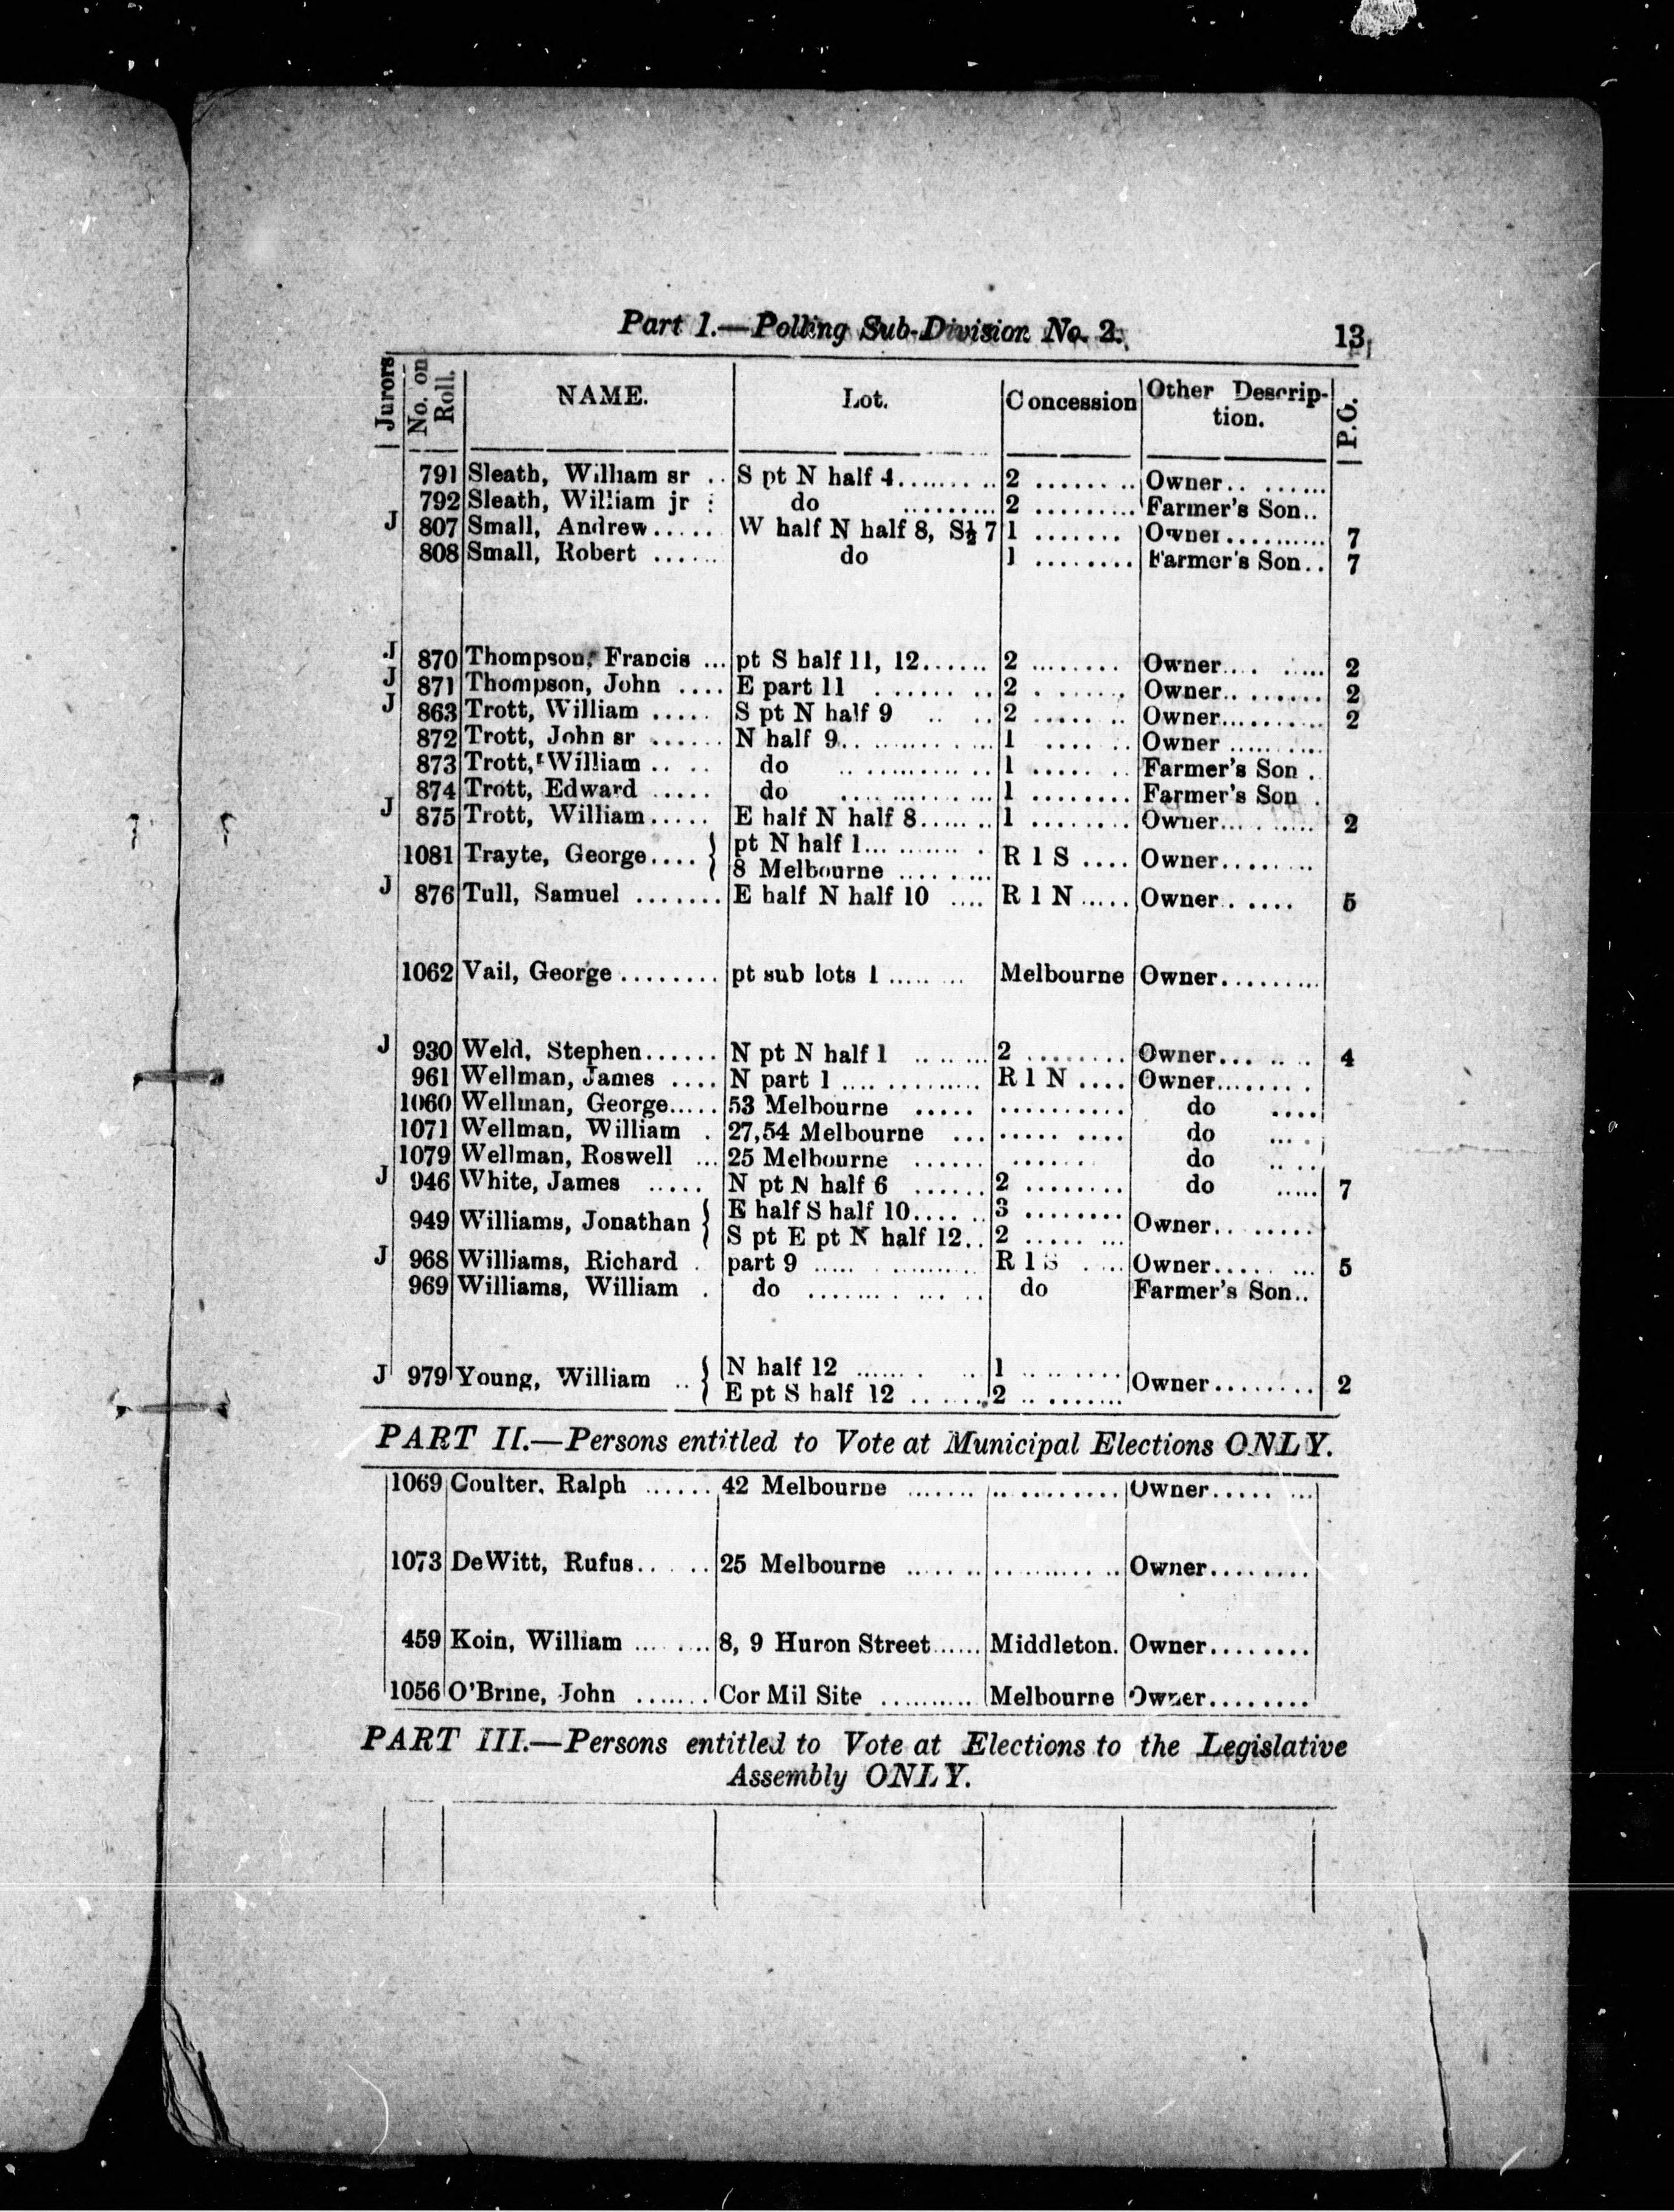 Part 1.—Polling Sub-Division No. 2. 13
Jurors No. on Roll. NAME. Lot. Concession Other Description. P.O.
791 Sleath, William sr .. S pt N half 4......... 2 ......... Owner.. ......
792 Sleath, William jr : do ......... 2 ......... Farmer's Son..
J 807 Small, Andrew..... W half N half 8, S½ 7 1 ....... Owner.......... 7
808 Small, Robert ...... do 1 ........ Farmer's Son.. 7
J 870 Thompson, Francis ... pt S half 11, 12...... 2 ........ Owner.... ..... 2
J 871 Thompson, John .... E part 11 ........ 2 ........ Owner......... 2
J 863 Trott, William ..... S pt N half 9 .. .. 2 ........ Owner.......... 2
872 Trott, John sr ...... N half 9.............. 1 ....... Owner .........
873 Trott, William .. .. do ............ 1 ........ Farmer's Son .
874 Trott, Edward ..... do ............ 1 ........ Farmer's Son .
J 875 Trott, William..... E half N half 8....... 1 ........ Owner......... 2
1081 Trayte, George.... { pt N half 1........... R 1 S .... Owner........
8 Melbourne .........
J 876 Tull, Samuel ....... E half N half 10 .... R 1 N ..... Owner...... 5
1062 Vail, George ........ pt sub lots 1 ........ Melbourne Owner.........
J 930 Weld, Stephen...... N pt N half 1 ........ 2 ........ Owner........ 4
961 Wellman, James .... N part 1 ............. R 1 N .... Owner........
1060 Wellman, George..... 53 Melbourne ..... .......... do ....
1071 Wellman, William . 27,54 Melbourne ... ......... do ....
1079 Wellman, Roswell ... 25 Melbourne ...... ...... do ....
J 946 White, James ..... N pt N half 6 ...... 2 ........ do ..... 7
949 Williams, Jonathan { E half S half 10...... 3 ........ Owner........
S pt E pt N half 12.. 2 ........
J 968 Williams, Richard . part 9 ............. R 1 S .... Owner........ 5
969 Williams, William . do ............. do Farmer's Son..
J 979 Young, William .. { N half 12 ........ 1 ........ Owner........ 2
E pt S half 12 ....... 2 .........
PART II.—Persons entitled to Vote at Municipal Elections ONLY.
1069 Coulter, Ralph ...... 42 Melbourne ....... .......... Owner........
1073 DeWitt, Rufus...... 25 Melbourne ....... .......... Owner........
459 Koin, William ........ 8, 9 Huron Street...... Middleton. Owner........
1056 O'Brine, John ....... Cor Mil Site .......... Melbourne Owner........
PART III.—Persons entitled to Vote at Elections to the Legislative
Assembly ONLY.